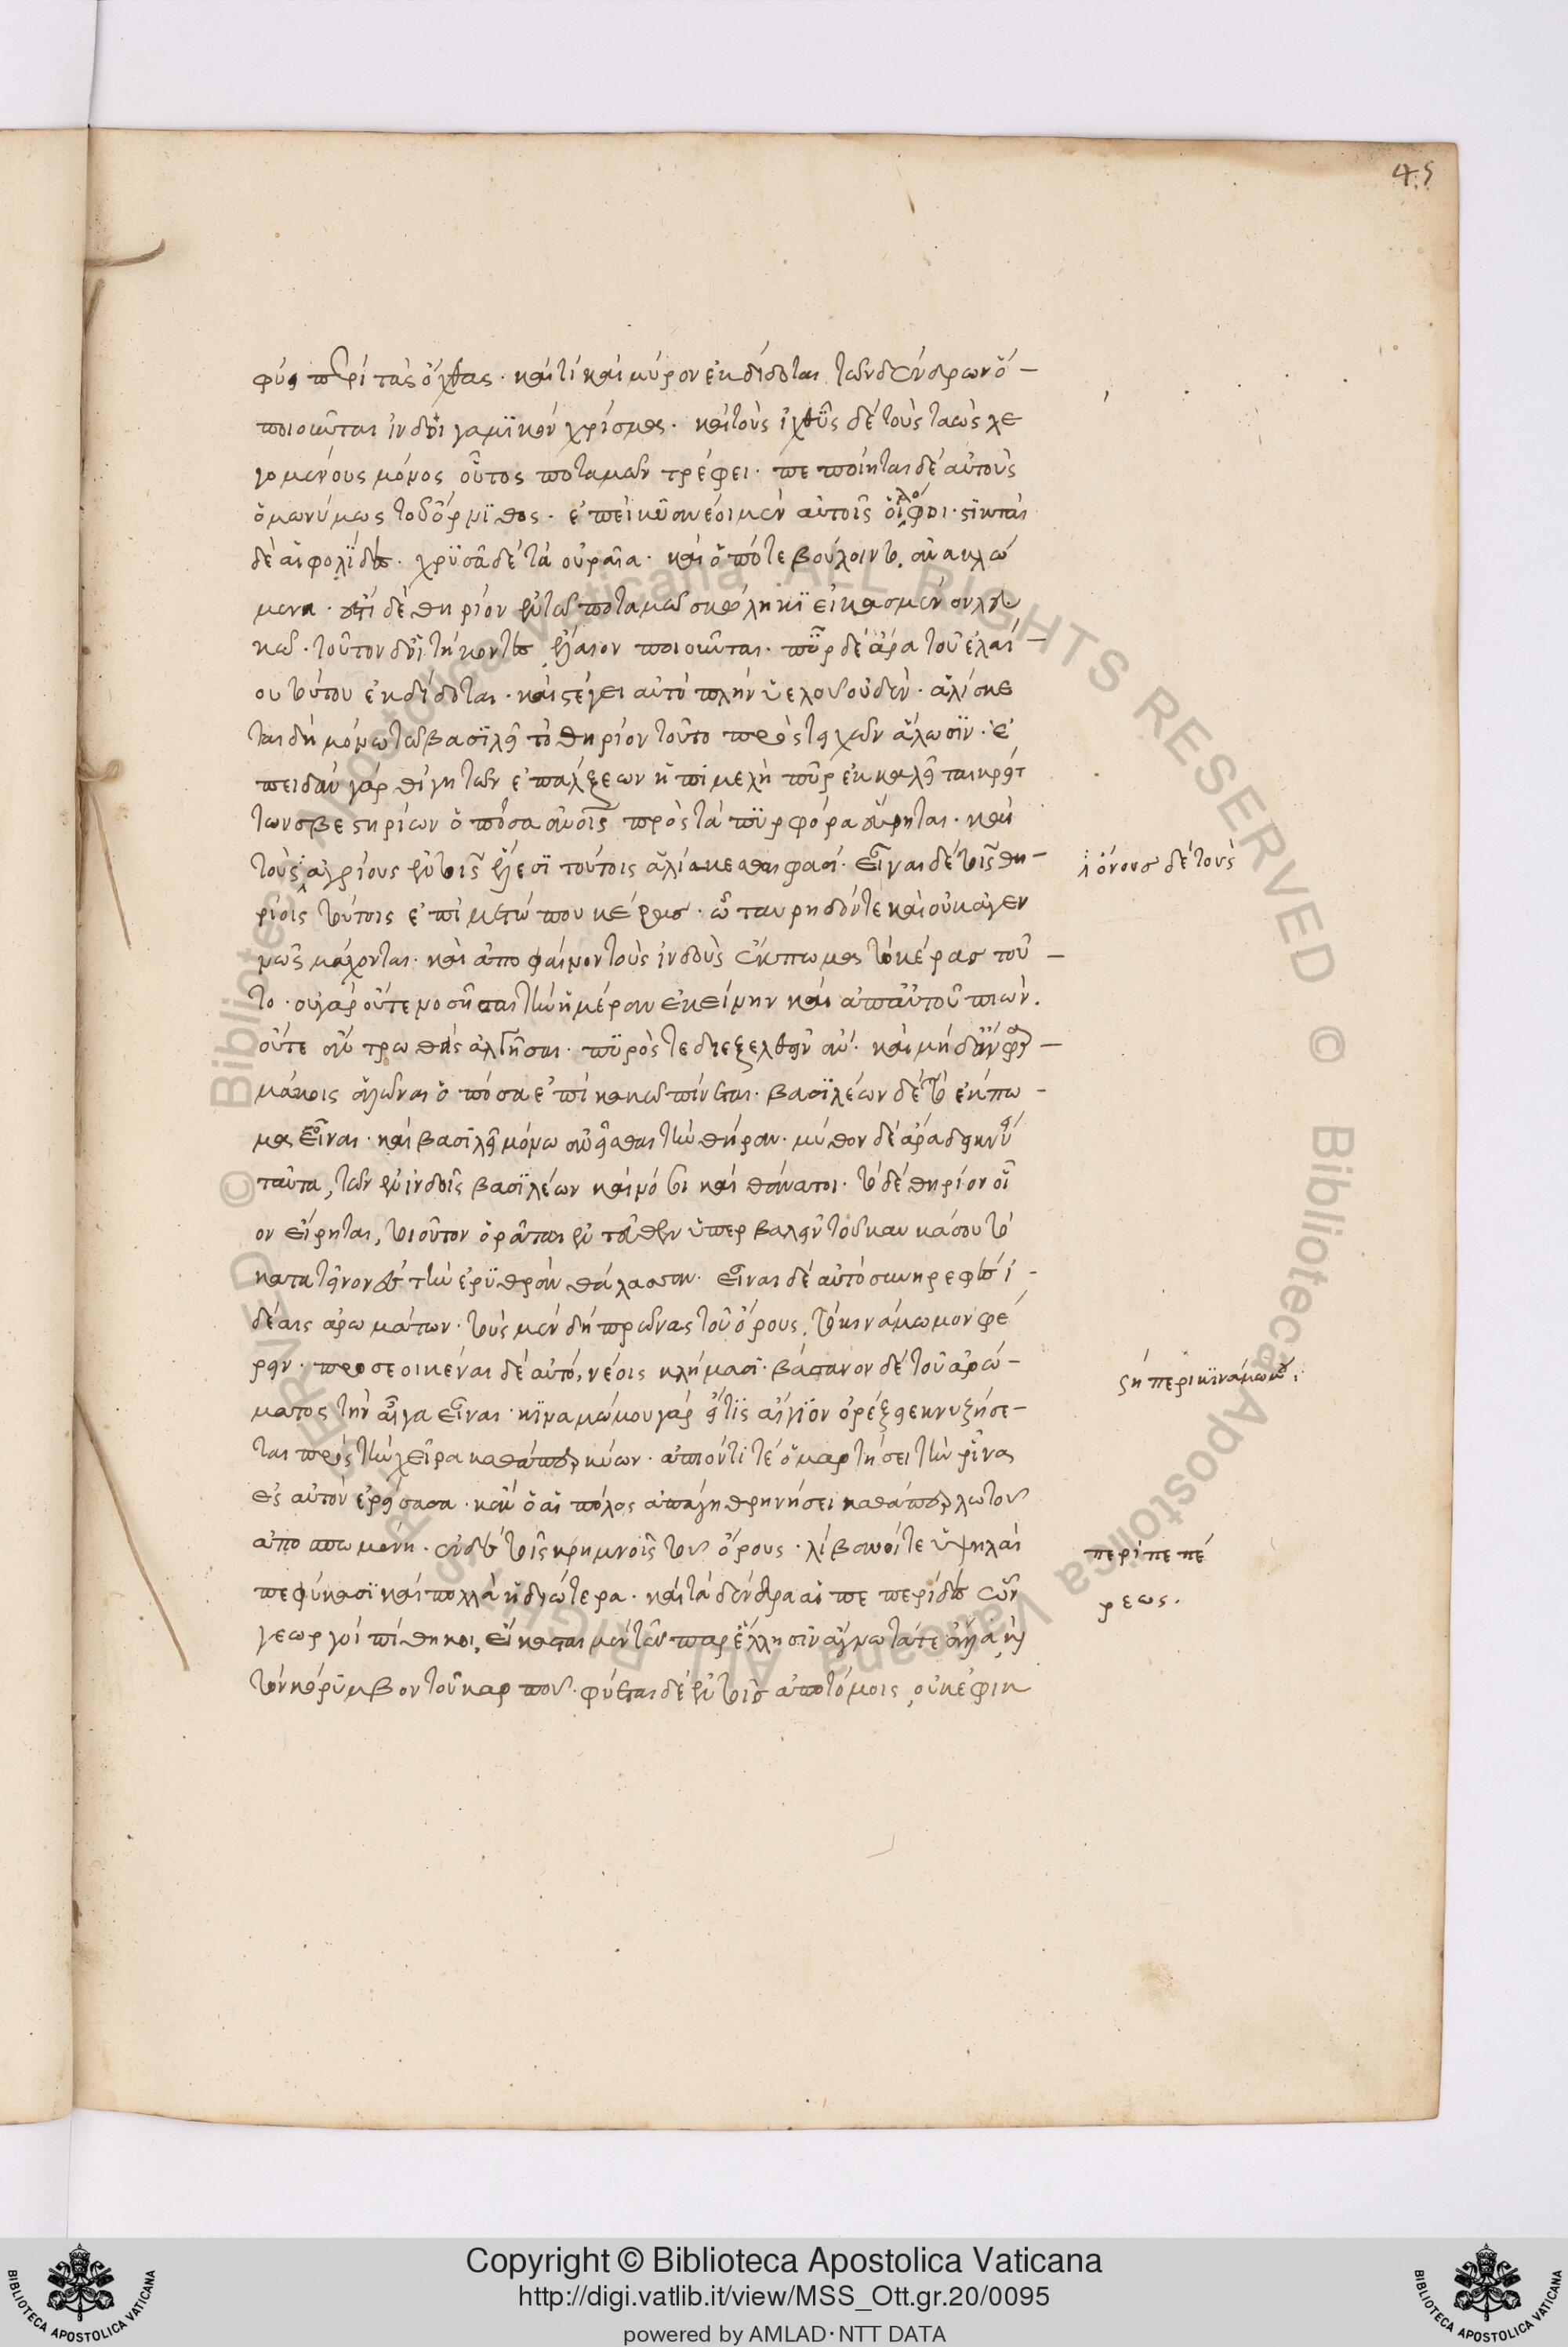 45
φύει περὶ τὰς ὄχθας· καί τι καὶ μύρον ἐκδίδοται τῶν δένδρων ὃ –
ποιοῦνται ἰνδοὶ γαμϊκὸν χρίσμα· καὶ τοὺς ἰχθῦς δὲ τοὺς ταὼς λε
γομένους μόνος οὗτος ποταμῶν τρέφει· πεποίηται δὲ αὐτοὺς
ὁμωνύμως τοῦ ὄρνϊθος· ἐπεὶ κυάνεοι μὲν αὐτοῖς οἱ λόφοι· στικταὶ
δὲ αἱ φολίδες· χρϋσᾶ δὲ τὰ οὐραῖα· καὶ ὁπότε βούλοιντο, ἀνακλώ
μενα· ἔστι δὲ θηρίον ἐν τῷ ποταμῷ σκώληκϊ εἰκασμένον λευ
κῷ· τοῦτον οἱ τήκοντες ἔλαιον ποιοῦνται· πῦρ δὲ ἄρα τοῦ ἐλαί –
ου τούτου ἐκδίδοται· καὶ στέγει αὐτὸ πλὴν ὑελοῦ οὐδέν· ἁλίσκε
ται δὴ μόνω τῶ βασϊλεῖ τὸ θηρίον τοῦτο πρὸς τειχῶν ἅλωσϊν· ἐ
πειδὰν γὰρ θίγη τῶν ἐπάλξεων ἡ πιμελὴ πῦρ ἐκκαλεῖται κρεῖτ
τον σβεστηρίων ὁπόσα ἀνθρώποις πρὸς τὰ πϋρφόρα εὕρηται· καὶ
τοὺς ἀγρίους ἐν τοῖς ἕλεσϊ τούτοις ἁλίσκεσθαι φασί· εἶναι δὲ τοῖς θη –
ἰ ὄνους δὲ τοὺς
ρίοις τούτοις ἐπὶ μετώπου κέρας· ὧ ταυρηδόν τε καὶ οὐκ ἀγεν
νῶς μάχονται· καὶ ἀποφαίνειν τοὺς ἰνδοὺς ἔκπωμα τὸ κέρας τοῦ –
το· οὐ γὰρ οὔτε νοσῆσαι τὴν ἡμέραν ἐκείνην καὶ ἀπ' αὐτοῦ πιών.
οὔτε ἂν τρωθεὶς ἀλγῆσαι· πϋρός τε διεξελθεῖν ἄν· καὶ μηδ' ἂν φαρ –
μάκοις ἁλῶναι ὁπόσα ἐπὶ κακῶ πίνεται· βασϊλέων δὲ τὸ ἔκπω –
μα εἶναι· καὶ βασϊλεῖ μόνω ἀνεῖσθαι τὴν θήραν· μῦθον δὲ ἄρα δεικνύει
ταῦτα, τῶν ἐν ἰνδοῖς βασϊλέων καὶ νόσοι καὶ θάνατοι· τὸ δὲ θηρίον οἷ
ον εἴρηται, τοιοῦτον ὁρᾶται ἐντεῦθεν ὑπερβαλεῖν τοῦ καυκάσου τὸ
κατατεῖνον ἐς τὴν ἐρϋθρὰν θάλασσαν· εἶναι δὲ αὐτὸ συνηρεφὲς ἰ –
δέαις ἀρωμάτων· τοὺς μὲν δὴ πρῶνας τοῦ ὄρους, τὸ κινάμωμον φέ
ρειν· προσεοικέναι δὲ αὐτό, νέοις κλήμασϊ· βάσανον δὲ τοῦ ἀρώ –
στή περὶ κϊναμώμου:
ματος τὴν αἶγα εἶναι· κϊναμώμου γὰρ εἴ τϊς αἰγϊ ὀν ὀρέξειε κνυζήσε –
ται πρὸς τὴν χεῖρα καθάπερ κύων· ἀπιόντι τὲ ὁμαρτήσει τὴν ῥῖνα
ἐς αὐτὸν ἐρείσασα· κἂν ὁ αἰπόλος ἀπάγη θρηνήσει καθάπερ λωτοῦ
ἀποσπωμένη· ἐν δὲ τοῖς κρημνοῖς τοῦ ὄρους· λίβανοί τε ὑψηλαὶ
περὶ πεπέ
πεφύκασϊ καὶ πολλὰ ἤδη ἕτερα· καὶ τὰ δένδρα αἱ πεπερίδες ὧν
ρεως.
γεωργοὶ πίθηκοι, εἴκασται μὲν τῶ παρ' ἕλλησϊν ἄγνω τά τε ἄλλα καὶ
τὸν κόρϋμβον τοῦ καρποῦ· φύεται δὲ ἐν τοῖς ἀποτόμοις, οὐκ ἐφικ
Copyright © Biblioteca Apostolica Vaticana
http://digi.vatlib.it/view/MSS_Ott.gr.20/0095
powered by AMLAD·NTT DATA